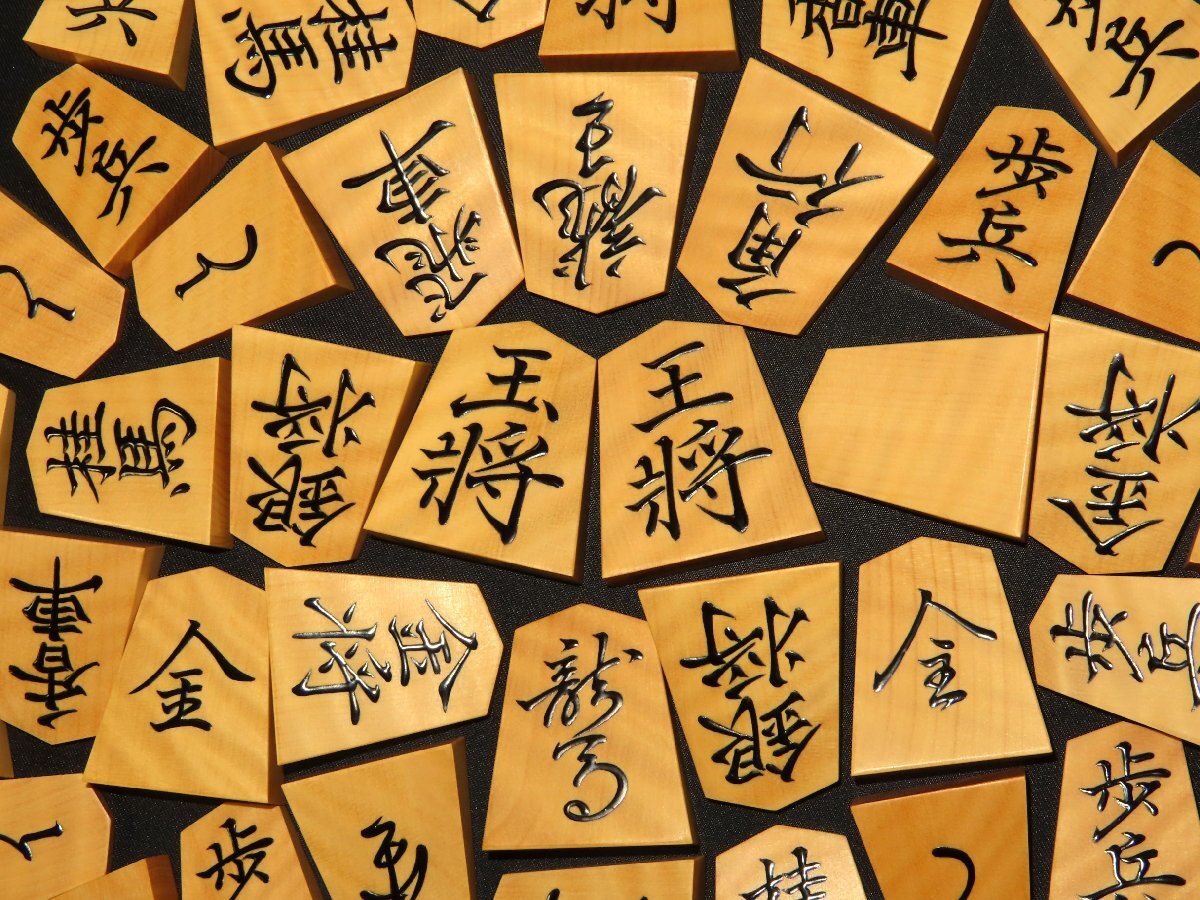 桂馬
香車
歩兵
歩兵
飛車
龍王
角行
歩兵
と
と
と
桂馬
銀将
玉将
王将
金将
香車
金
金将
龍馬
銀将
金
歩兵
と
歩
歩兵